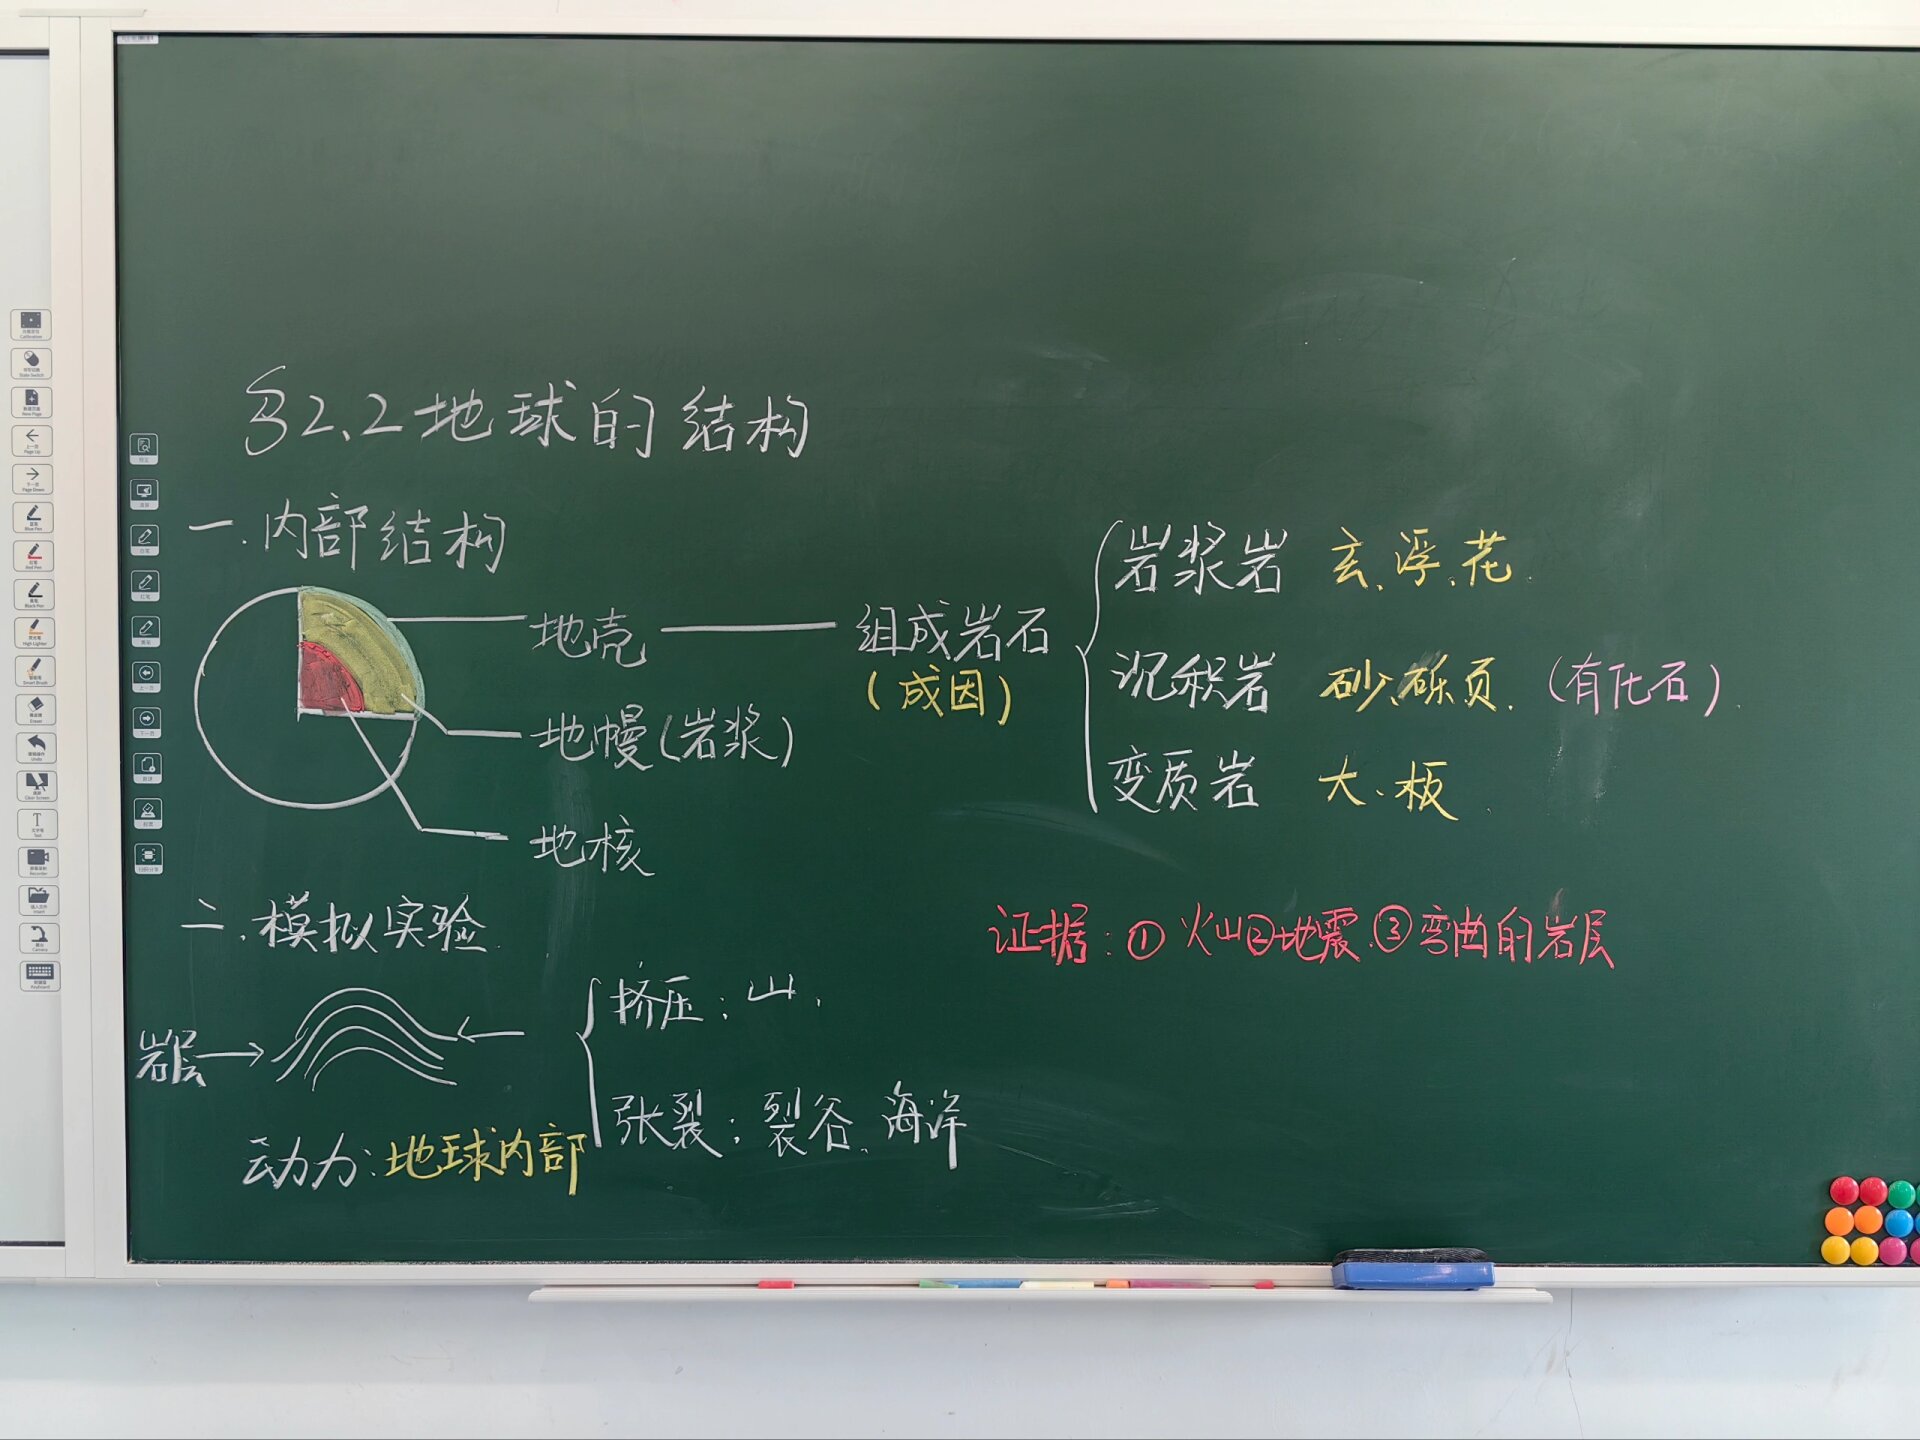 §2.2 地球的结构
一.内部结构
地壳 组成岩石
(成因)
岩浆岩 玄、浮、花
沉积岩 砂、砾页. (有化石)
变质岩 大、板
地幔(岩浆)
地核
二.模拟实验
证据:①火山②地震③弯曲的岩层
岩层
挤压:山.
张裂:裂谷、海洋
动力:地球内部